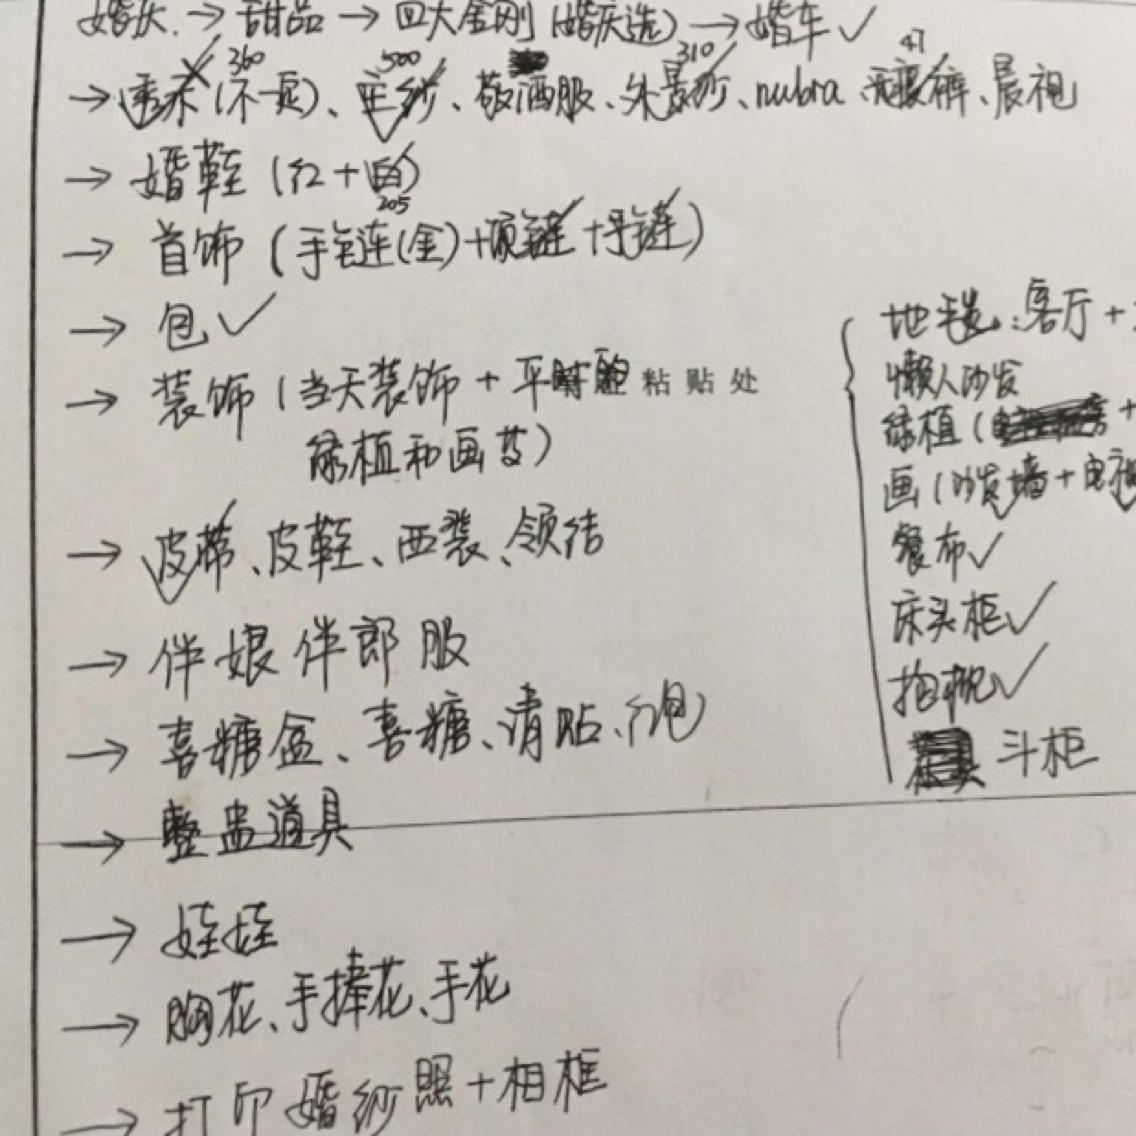 婚庆 → 甜品 → 四大金刚(婚庆选) → 婚车 ✓
360 500 310 47
→ 秀禾(不一定)、主纱、敬酒服、外景纱、nubra、安全裤、晨袍
→ 婚鞋(红+白)
205
→ 首饰(手链(金)+项链+手链)
→ 包 ✓
→ 装饰(当天装饰+平时 粘贴处
绿植和画等)
→ 皮带、皮鞋、西装、领结
→ 伴娘伴郎服
→ 喜糖盒、喜糖、请贴、红包
→ 整蛊道具
→ 娃娃
→ 胸花、手捧花、手花
→ 打印婚纱照+相框
地毯:客厅+
懒人沙发
绿植( +
画(沙发墙+电视
餐布 ✓
床头柜 ✓
抱枕 ✓
斗柜